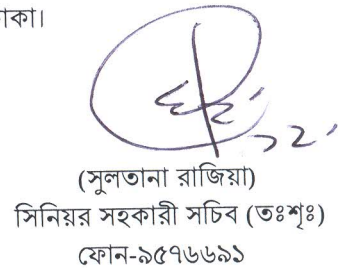 াকা।
(সুলতানা রাজিয়া)
সিনিয়র সহকারী সচিব (তঃশৃঃ)
ফোন-৯৫৭৬৬৯১